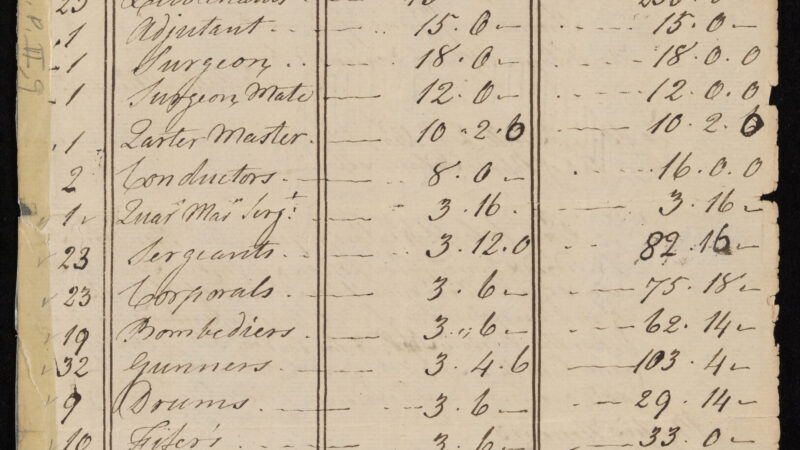 23 Lieutenants 
1 Adjutant 15.0 15.0
1 Surgeon 18.0 18.0.0
1 Surgeon Mate 12.0 12.0.0
1 Qarter Master 10.2.6 10.2.6
2 Conductors 8.0 16.0.0
1 Quar Mar Serjt 3.16 3.16
23 Sergeants 3.12.0 82.16
23 Corporals 3.6 75.18
19 Bombediers 3.6 62.14
32 Gunners 3.4.6 103.4
9 Drums 3.6 29.14
10 Fifer's 3.6 33.0